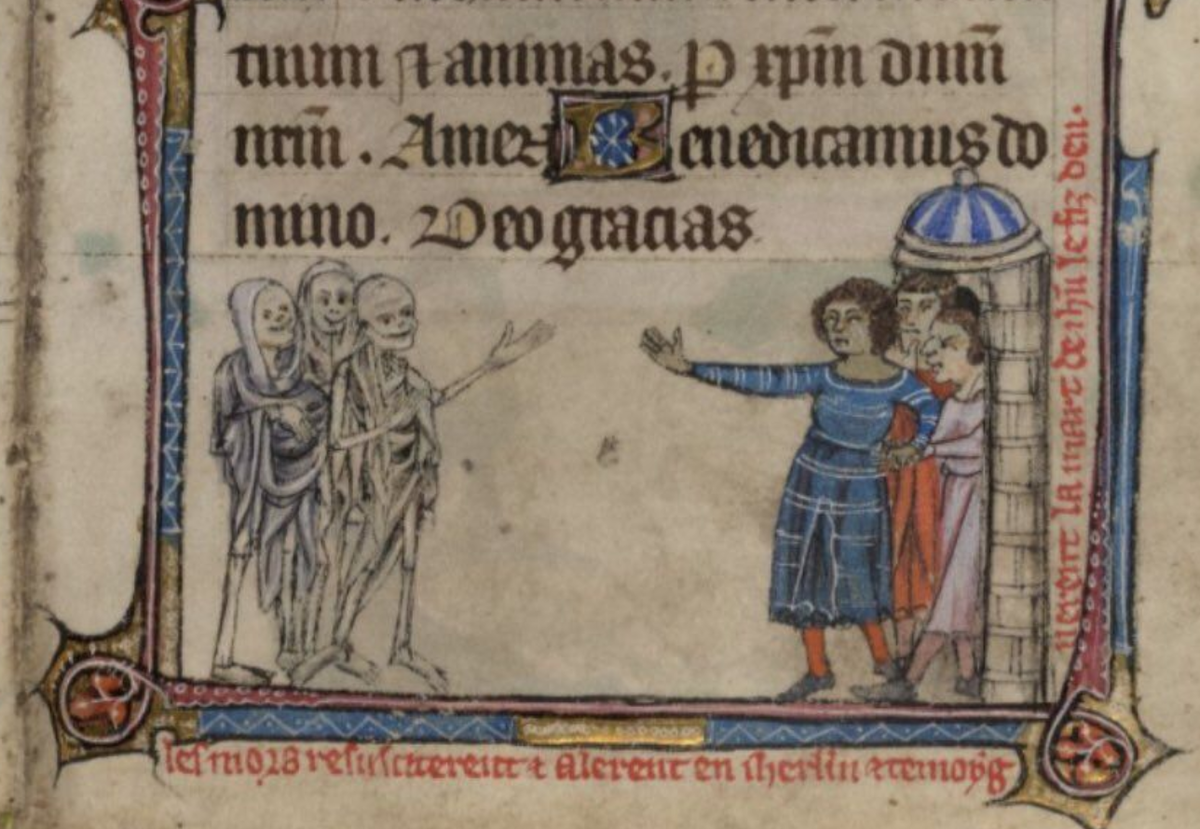 tuum ⁊ animas. ꝑ xp̄m dnm̄
nrm̄. Amen Benedicamus do
mino. Deo gracias.
les mors resusciterent ⁊ alerent en iherłm ⁊ temoyg
nerent la mort de ihū le fiz deu.